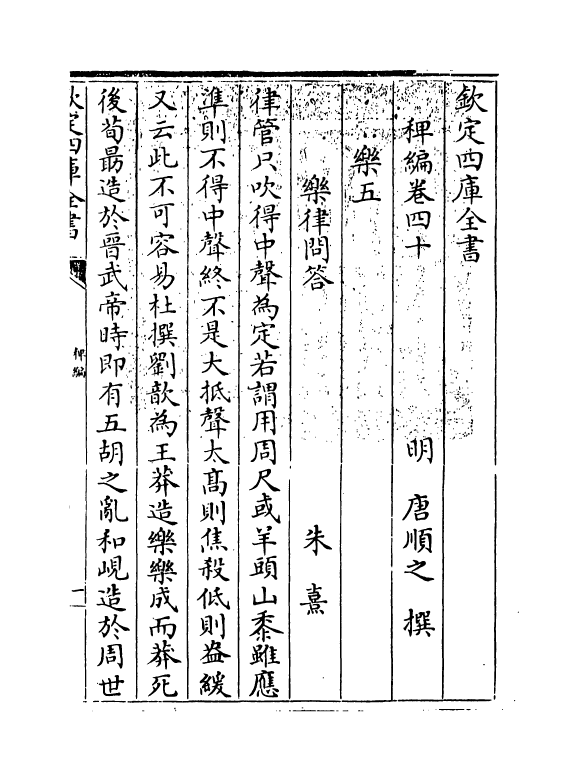 欽定四庫全書
稗編卷四十
明 唐順之 撰
樂五
樂律問答 朱熹
律管只吹得中聲為定若謂用周尺或羊頭山黍雖應
準則不得中聲終不是大抵聲太髙則焦殺低則盎緩
又云此不可容易杜撰劉歆為王莽造樂樂成而莽死
後荀朂造於晉武帝時即有五胡之亂和峴造於周世
欽定四庫全書
稗編
一